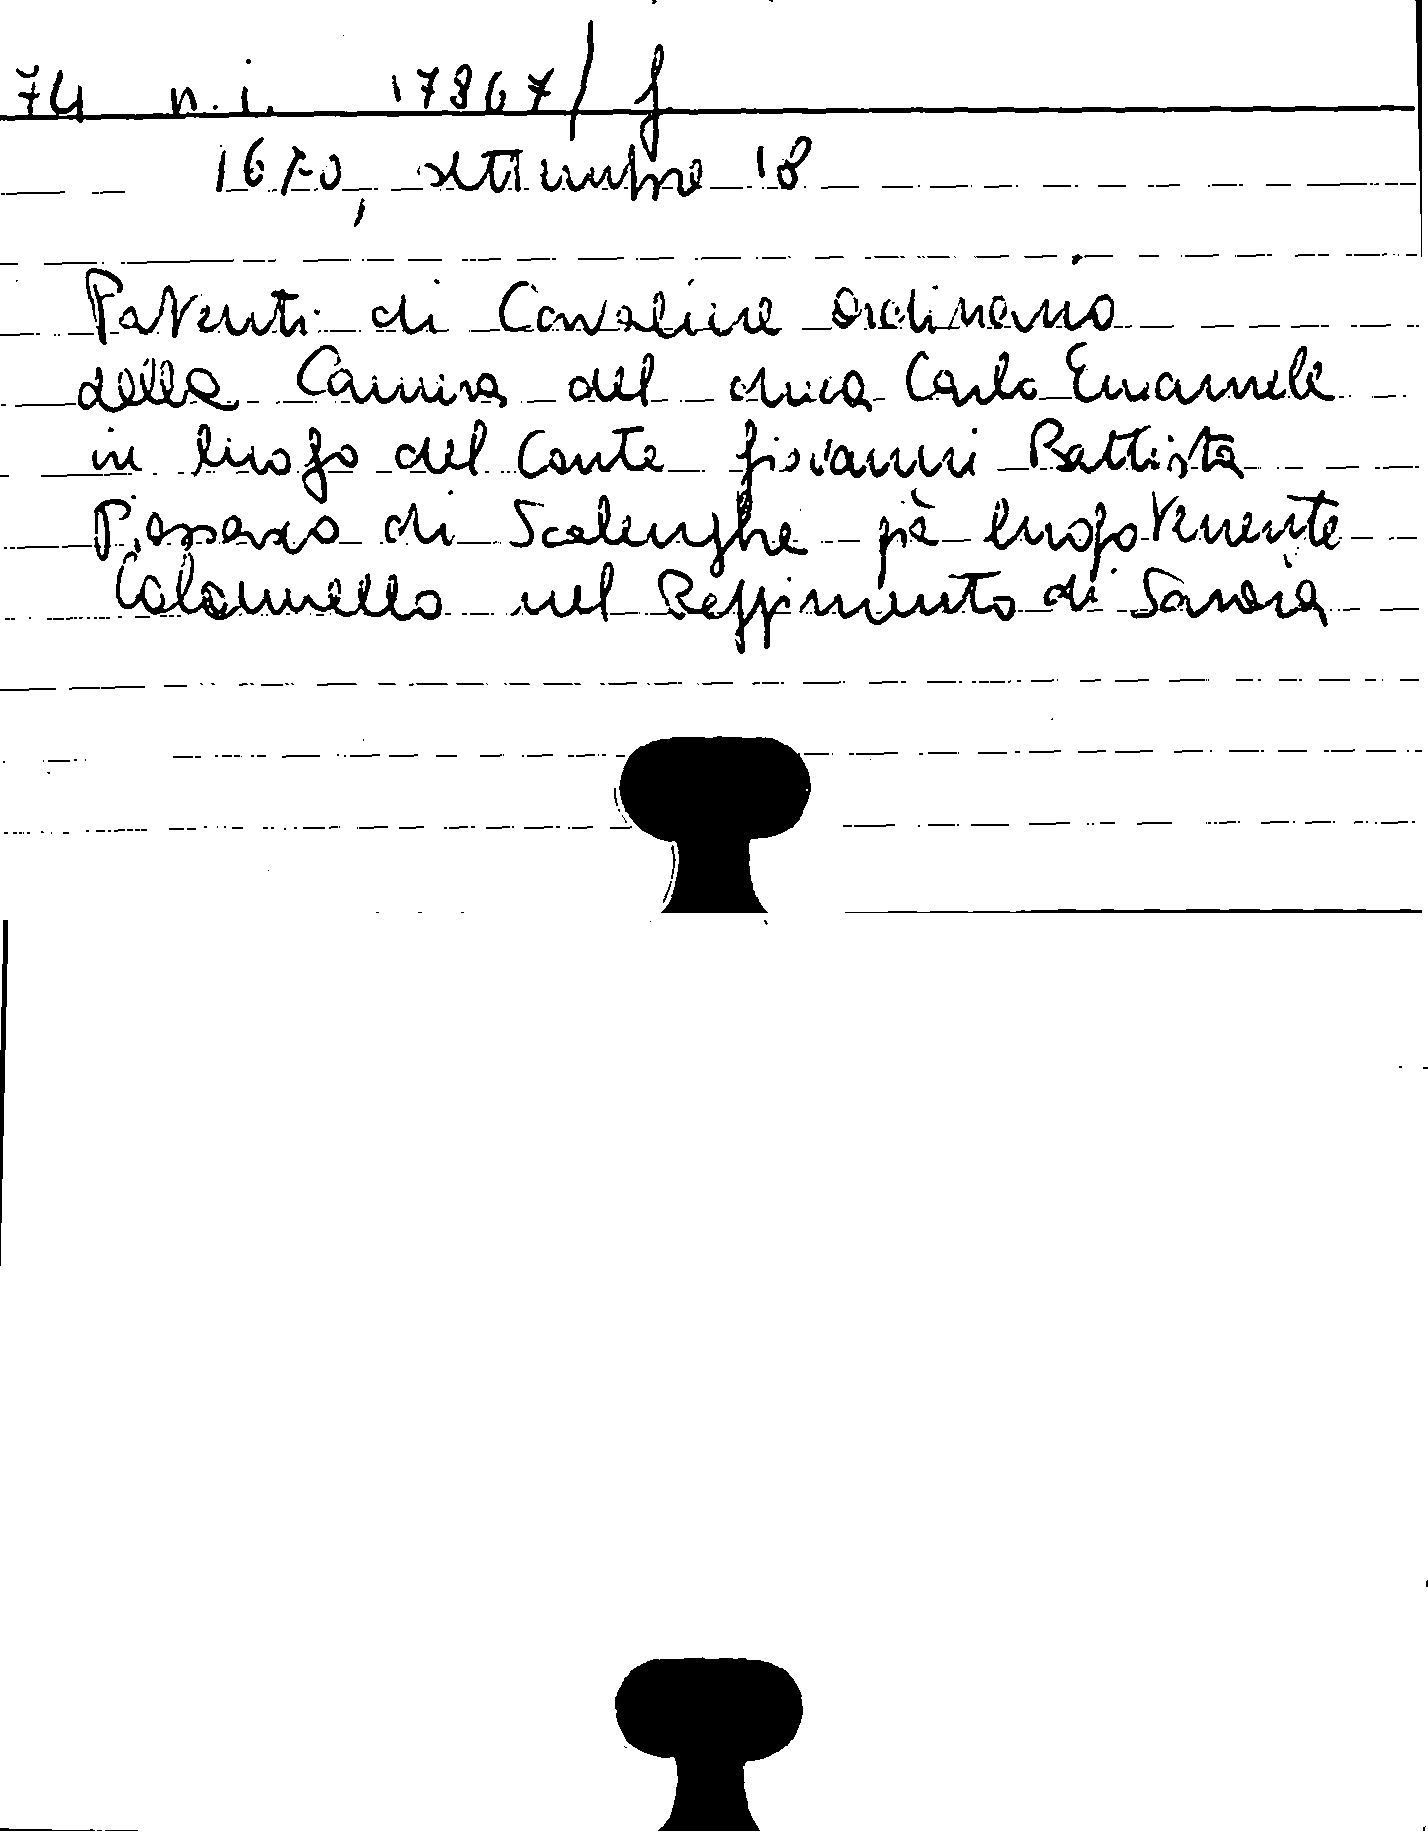 74 n.i. 17867/f
1670, settembre 18
Patenti di Cavaliere ordinario
della Camera del duca Carlo Emanuele
in luogo del Conte Giovanni Battista
Piossasco di Scalenghe già luogotenente
Colonnello nel Reggimento di Savoia